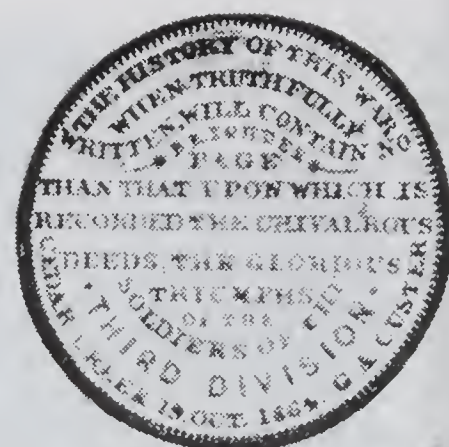 THE HISTORY OF THIS WAR
WHEN TRUTHFULLY
WRITTEN WILL CONTAIN NO
PAGE
THAN THAT UPON WHICH IS
RECORDED THE CHIVALROUS
DEEDS, THE GLORIOUS
TRIUMPHS
OF THE
SOLDIERS OF THE
THIRD DIVISION.
CEDAR CREEK 19 OCT. 1864. G A CUSTER